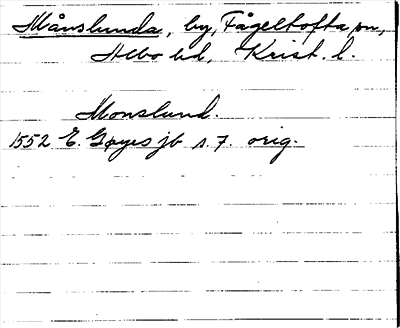 Månslunda, by, Fågeltofta sn,
Albo hd, Krist. l.
Monslund.
1552 E. Gøyes jb s. 7. orig.